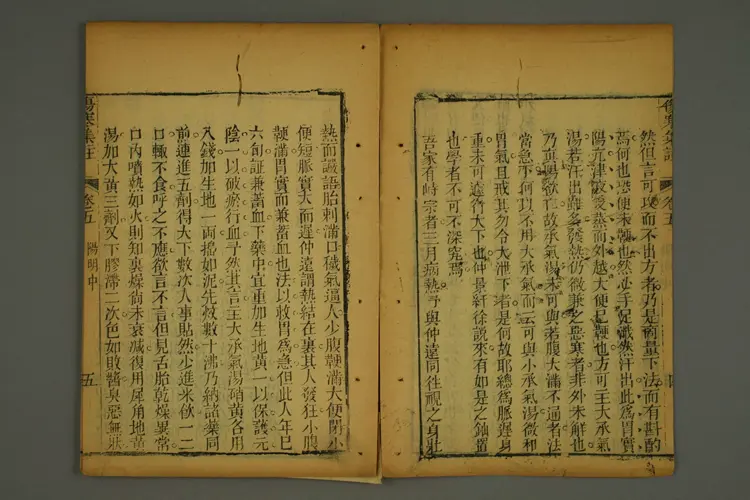 然但言可攻而不出方者乃是商量下法而有斟酌
焉何也恐便未鞕也然必手足濈然汗出此爲胃實
陽亢津液受蒸而外越大便已鞕也方可主大承氣
湯若汗出雖多發熱仍微兼之惡寒者非外未解也
乃眞陽欲亡故承氣湯未可與若腹大滿不通者法
當急下何以不用大承氣而云可與小承氣湯微和
胃氣且戒其勿令大泄下者是何故耶總爲脈遲身
重未可遽行大下也仲景紆徐說來有如是之鈿置
也學者不可不深究焉
吾家有時宗者三月病熱予與仲遠同往視之身壯
熱而譫語胎刺滿口穢氣逼人少腹鞕滿大便閉小
便短脈實大而遲仲遠謂熱結在裏其人發狂小腹
鞕滿胃實而兼蓄血也法以救胃爲急但此人年巳
六旬証兼蓄血下藥中宜重加生地黃一以保護元
陰一以破瘀行血予然其言主大承氣湯硝黃各用
八錢加生地一兩搗如泥先煎數十沸乃納諸藥同
煎連進五劑得大下數次人事貼然少進米飮一二
口輒不食呼之不應欲言不言但見舌胎乾燥異常
口內噴熱如火則知裏燥尙未衰減復用犀角地黃
湯加大黃三劑又下膠滯二次色如敗醬臭惡無狀
傷寒集註
卷五
陽明中
五